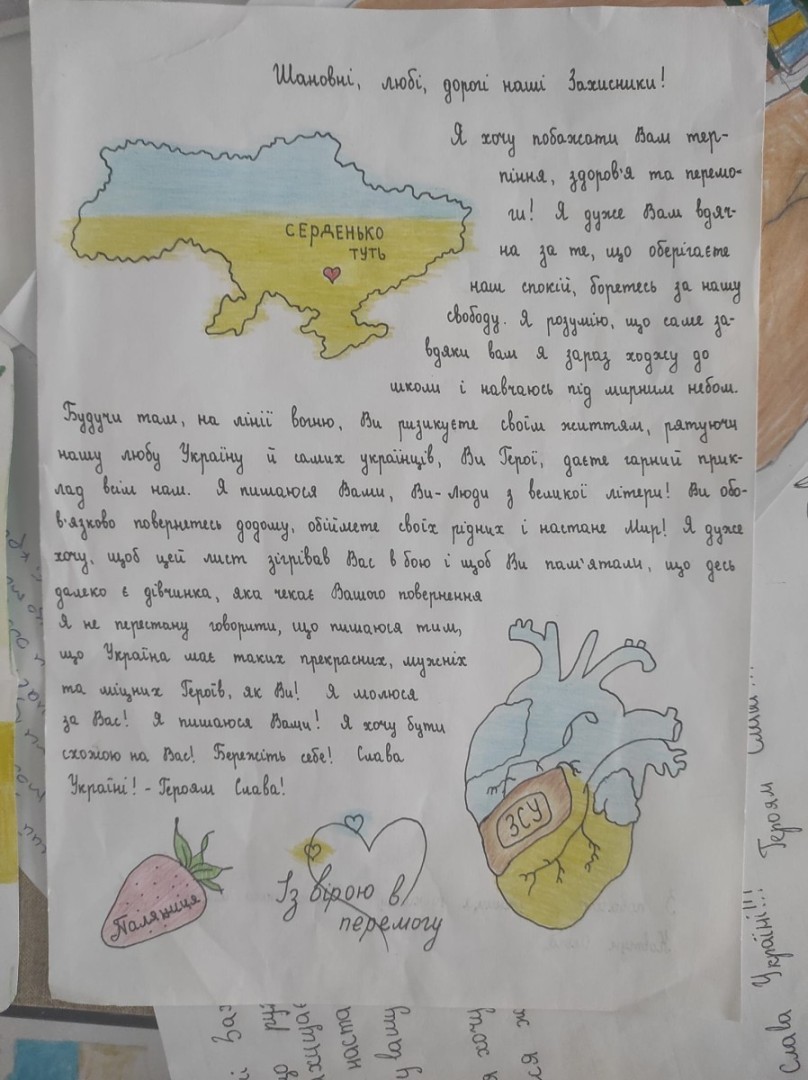 Шановні, любі, дорогі наші Захисники!
Я хочу побажати Вам тер-
піння, здоров'я та перемо-
ги! Я дуже Вам вдяч-
на за те, що оберігаєте
наш спокій, боретесь за нашу
свободу. Я розумію, що саме за-
вдяки вам я зараз ходжу до
школи і навчаюсь під мирним небом.
СЕРДЕНЬКО
ТУТЬ
Будучи там, на лінії вогню, Ви ризикуєте своїм життям, рятуючи
нашу любу Україну й самих українців, Ви Герої, даєте гарний прик-
лад всім нам. Я пишаюся Вами, Ви-люди з великої літери! Ви обо-
в'язково повернетесь додому, обіймете своїх рідних і настане Мир! Я дуже
хочу, щоб цей лист зігрівав Вас в бою і щоб Ви пам'ятали, що десь
далеко є дівчинка, яка чекає Вашого повернення
Я не перестану говорити, що пишаюся тим,
що Україна має таких прекрасних, мужніх
та міцних Героїв, як Ви! Я молюся
за Вас! Я пишаюся Вами! Я хочу бути
схожою на Вас! Бережіть себе! Слава
Україні! - Героям Слава!
ЗСУ
Паляниця
Із вірою в
перемогу
Слава Україні!!! Героям
наста
вашу
я хочу